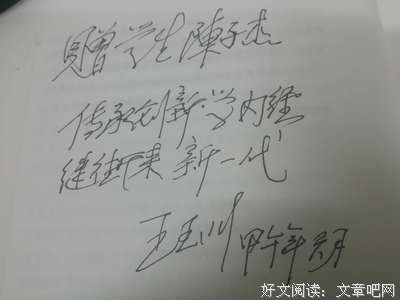 贈学生陳子杰
传承创新学内经
继往开来 新一代
王玉川 甲午年
好文阅读：文章吧网